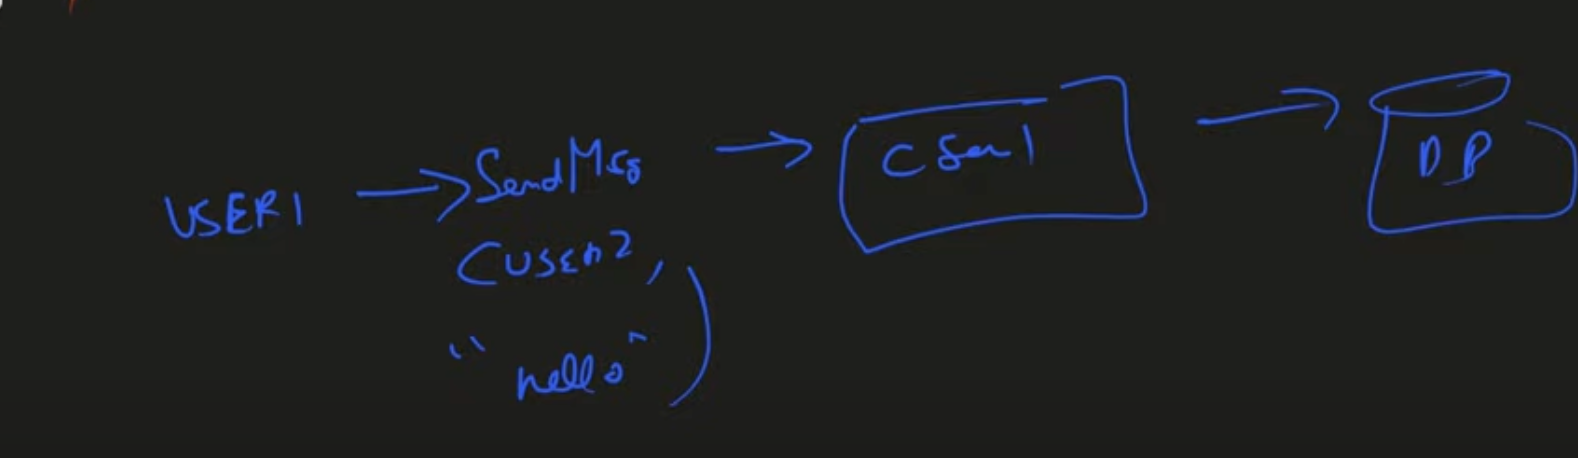 USER1
SendMsg
(USER2,
"hello")
CSer1
DB